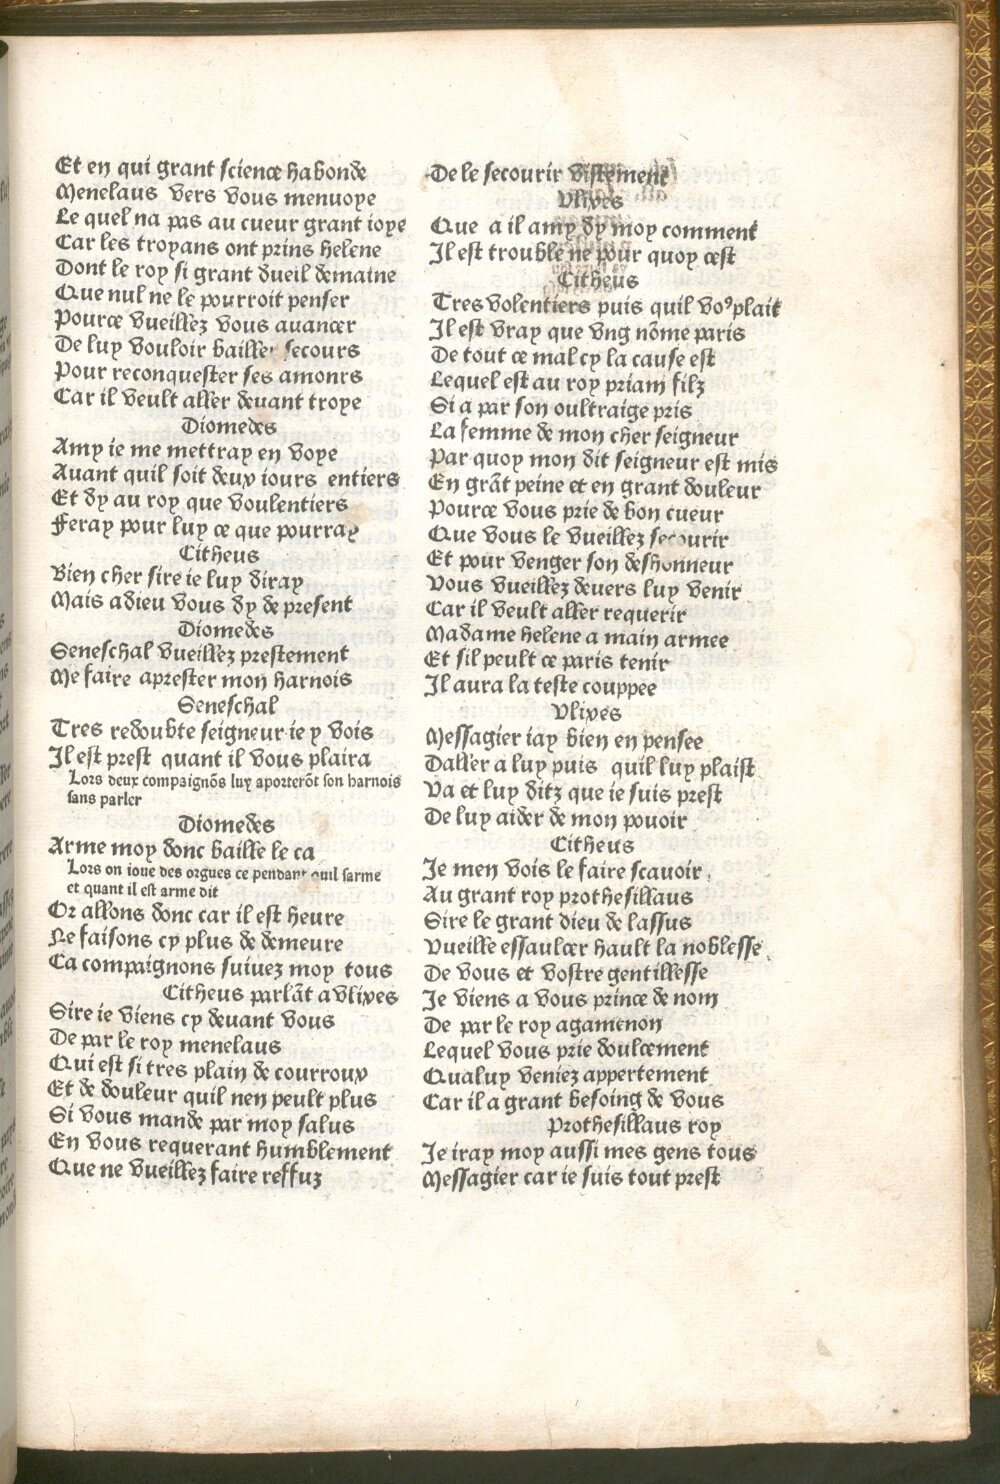 Et en qui grant science habonde
Menelaus vers vous menuoye
Le quel na pas au cueur grant ioye
Car les troyans ont prins helene
Dont le roy si grant dueil demaine
Que nul ne le pourroit penser
Pource vueillez vous auancer
De luy vouloir bailler secours
Pour reconquester ses amonrs
Car il veult aller deuant troye
Diomedes
Amy ie me mettray en voye
Auant quil soit deux iours entiers
Et dy au roy que voulentiers
Feray pour luy ce que pourray
Citheus
Bien cher sire ie luy diray
Mais adieu vous dy de present
Diomedes
Seneschal vueillez prestement
Me faire aprester mon harnois
Seneschal
Tres redoubte seigneur ie y vois
Il est prest quant il vous plaira
Lors deux compaignõs luy aporterõt son harnois
sans parler
Diomedes
Arme moy donc baille le ca
Lors on ioue des orgues ce pendant quil sarme
et quant il est arme dit
Or allons donc car il est heure
Ne faisons cy plus de demeure
Ca compaignons suiuez moy tous
Citheus parlãt a vlixes
Sire ie viens cy deuant vous
De par le roy menelaus
Qui est si tres plain de courroux
Et de douleur quil nen peult plus
Si vous mande par moy salus
En vous requerant humblement
Que ne vueillez faire reffuz
De le secourir vistement
Vlixes
Que a il amy dy moy comment
Il est trouble ne pour quoy cest
Citheus
Tres volentiers puis quil voꝰ plait
Il est vray que vng nõme paris
De tout ce mal cy la cause est
Lequel est au roy priam filz
Si a par son oultraige pris
La femme de mon cher seigneur
Par quoy mon dit seigneur est mis
En grãt peine et en grant douleur
Pource vous prie de bon cueur
Que vous le vueillez secourir
Et pour venger son deshonneur
Vous vueillez deuers luy venir
Car il veult aller requerir
Madame helene a main armee
Et sil peult ce paris tenir
Il aura la teste couppee
Vlixes
Messagier iay bien en pensee
Daller a luy puis quil luy plaist
Va et luy ditz que ie suis prest
De luy aider de mon pouoir
Citheus
Je men vois le faire scauoir
Au grant roy prothesillaus
Sire le grant dieu de lassus
Vueille essaulcer hault la noblesse
De vous et vostre gentillesse
Je viens a vous prince de nom
De par le roy agamenon
Lequel vous prie doulcement
Qualuy veniez appertement
Car il a grant besoing de vous
Prothesillaus roy
Je iray moy aussi mes gens tous
Messagier car ie suis tout prest